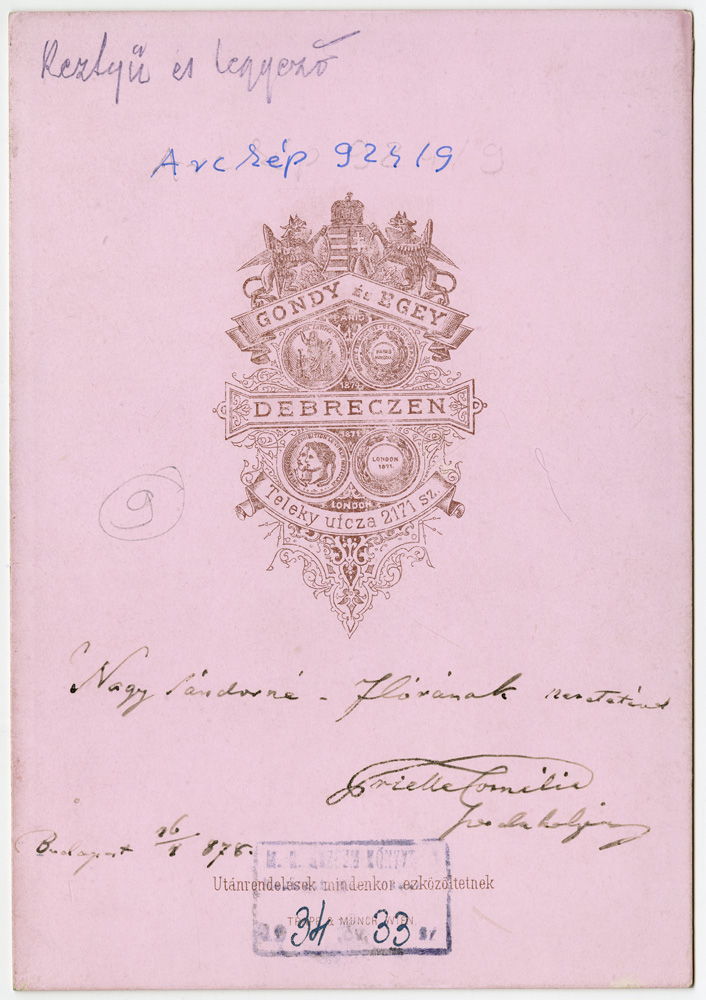 Kesztyű és legyező
Arckép 924/9
GONDY és EGEY
PARIS
1874
DEBRECZEN
1871
LONDON
1871.
LONDON
Teleky utcza 2171 sz.
9
Nagy Sándorné - Flórának szeretetével
Prielle Cornélia
Budapest 16/1 878.
Utánrendelések mindenkor eszközöltetnek
& MÜNCH WIEN
34 33